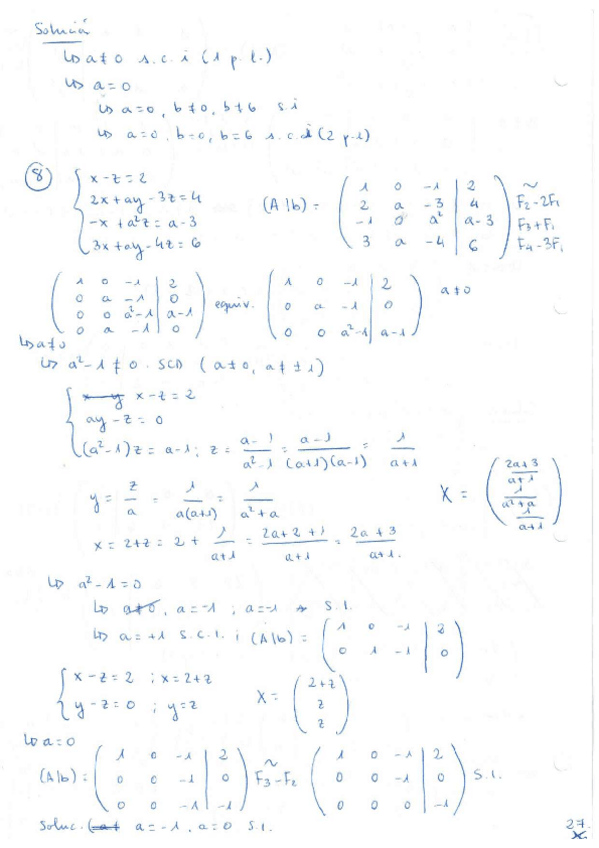 Solució
↳ a≠0 s.c.i (1 p.l.)
↳ a=0
↳ a=0, b≠0, b≠6 s.i
↳ a=0, b=0, b=6 s.c.i (2 p.l)
⑧ { x-z=2
2x+ay-3z=4
-x+a²z=a-3
3x+ay-4z=6
(A|b) = ( 1 0 -1 | 2
2 a -3 | 4
-1 0 a² | a-3
3 a -4 | 6 ) ~ F₂-2F₁
F₃+F₁
F₄-3F₁
( 1 0 -1 | 2
0 a -1 | 0
0 0 a²-1 | a-1
0 a -1 | 0 ) equiv. ( 1 0 -1 | 2
0 a -1 | 0
0 0 a²-1 | a-1 ) a≠0
↳ a≠0
↳ a²-1≠0. SCD (a≠0, a≠±1)
{ x-z=2
ay-z=0
(a²-1)z=a-1; z = a-1/a²-1 = a-1/(a+1)(a-1) = 1/a+1
y = z/a = 1/a(a+1) = 1/a²+a
X = ( 2a+3/a+1
1/a²+a
1/a+1 )
x = 2+z = 2 + 1/a+1 = 2a+2+1/a+1 = 2a+3/a+1.
↳ a²-1=0
↳ a≠0, a=-1; a=-1 → S.I.
↳ a=+1 S.C.I. i (A|b) = ( 1 0 -1 | 2
0 1 -1 | 0 )
{ x-z=2 ; x=2+z
y-z=0 ; y=z
X = ( 2+z
z
z )
↳ a=0
(A|b) = ( 1 0 -1 | 2
0 0 -1 | 0
0 0 -1 | -1 ) ~ F₃-F₂ ( 1 0 -1 | 2
0 0 -1 | 0
0 0 0 | -1 ) S.I.
Soluc. a=-1, a=0 S.I.
27